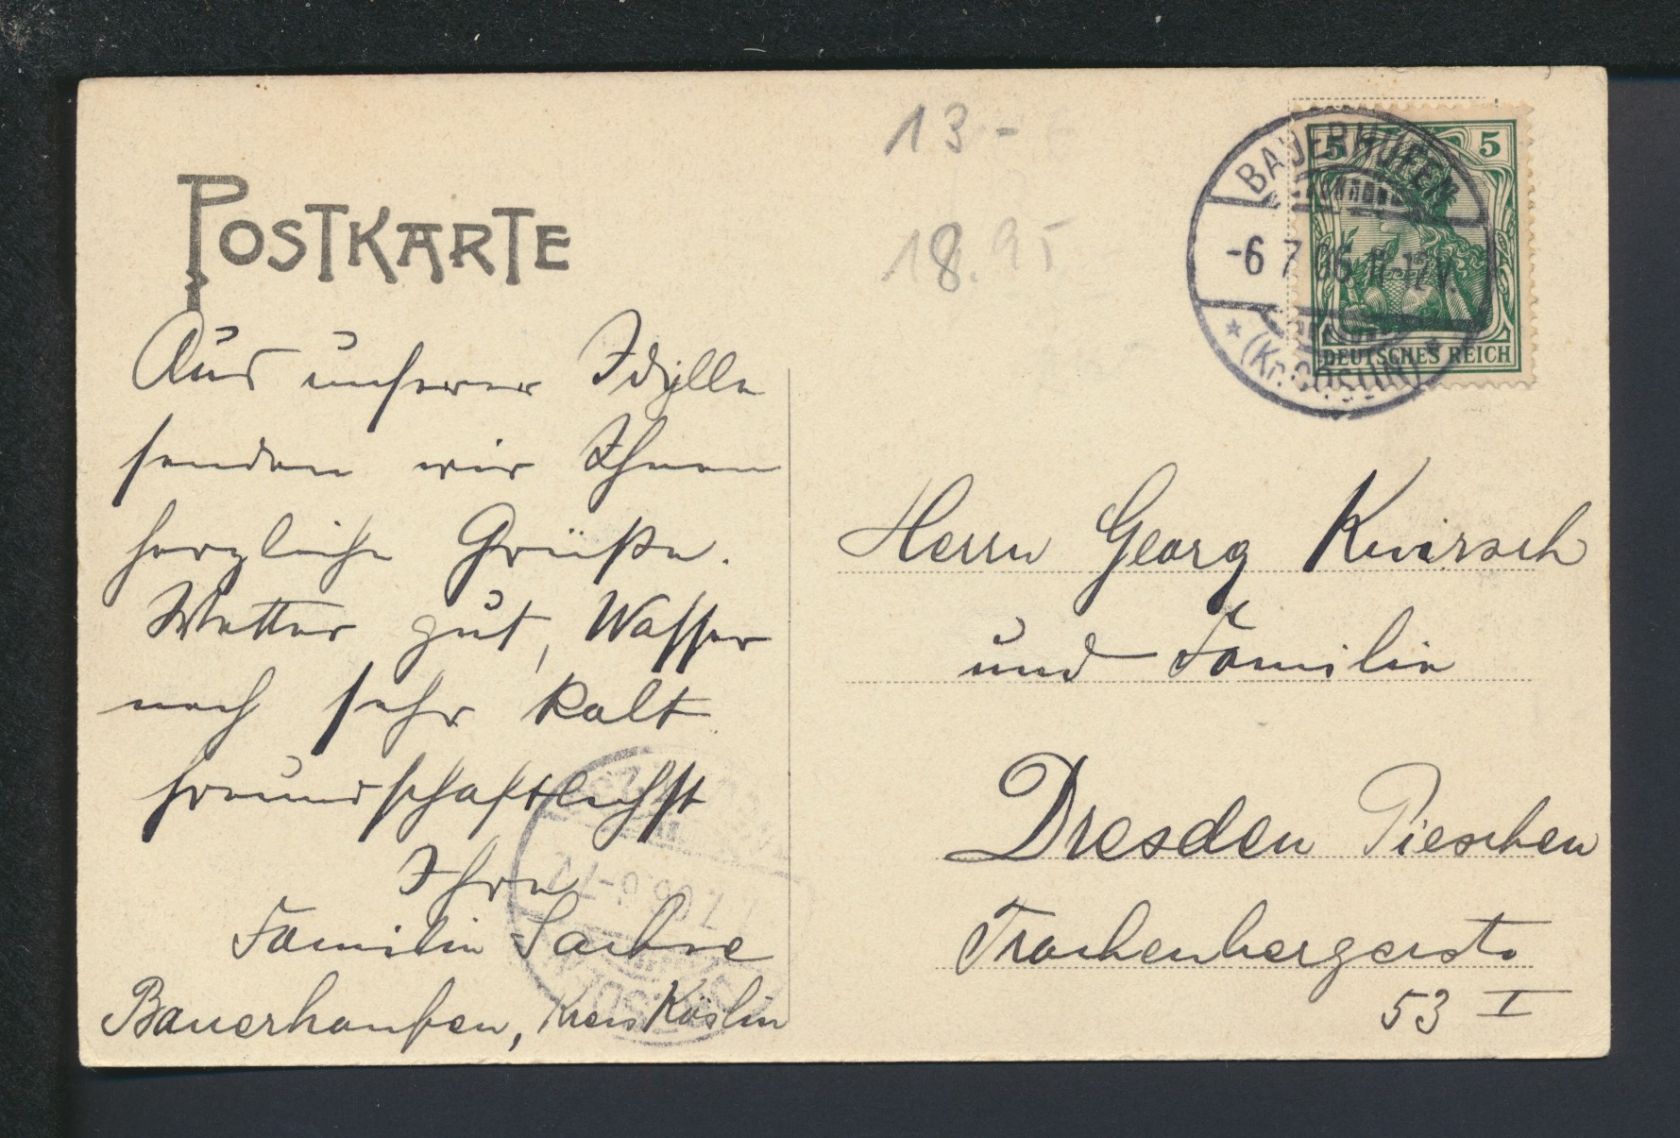 13 -
18.95
POSTKARTE
BAUERHUFEN
-6 7 06 11-12 V.
(Kr. CÖSLIN)
5 5
DEUTSCHES REICH
Aus unserer Idylle
senden wir Ihnen
herzliche Grüße.
Wetter gut, Wasser
noch sehr kalt
freundschaftlichst
Ihre
Familie Sachse
Bauerhaufen, Kreis Köslin
Herrn Georg Kwirsch
und Familie
Dresden Pieschen
Trachenbergerstr.
53 I